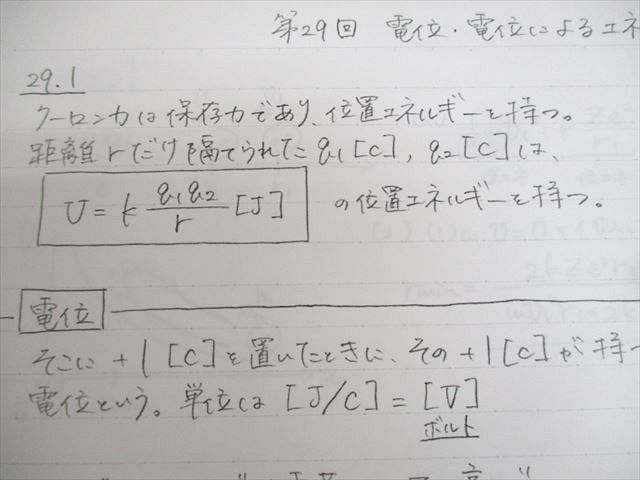 第29回 電位・電位によるエネ
29.1
クーロン力は保存力であり、位置エネルギーを持つ。
距離rだけ隔てられたq₁[C], q₂[C]は、
U = k q₁q₂/r [J] の位置エネルギーを持つ。
電位
そこに +1[C]を置いたときに、その+1[C]が持
電位という。単位は [J/C] = [V]
ボルト